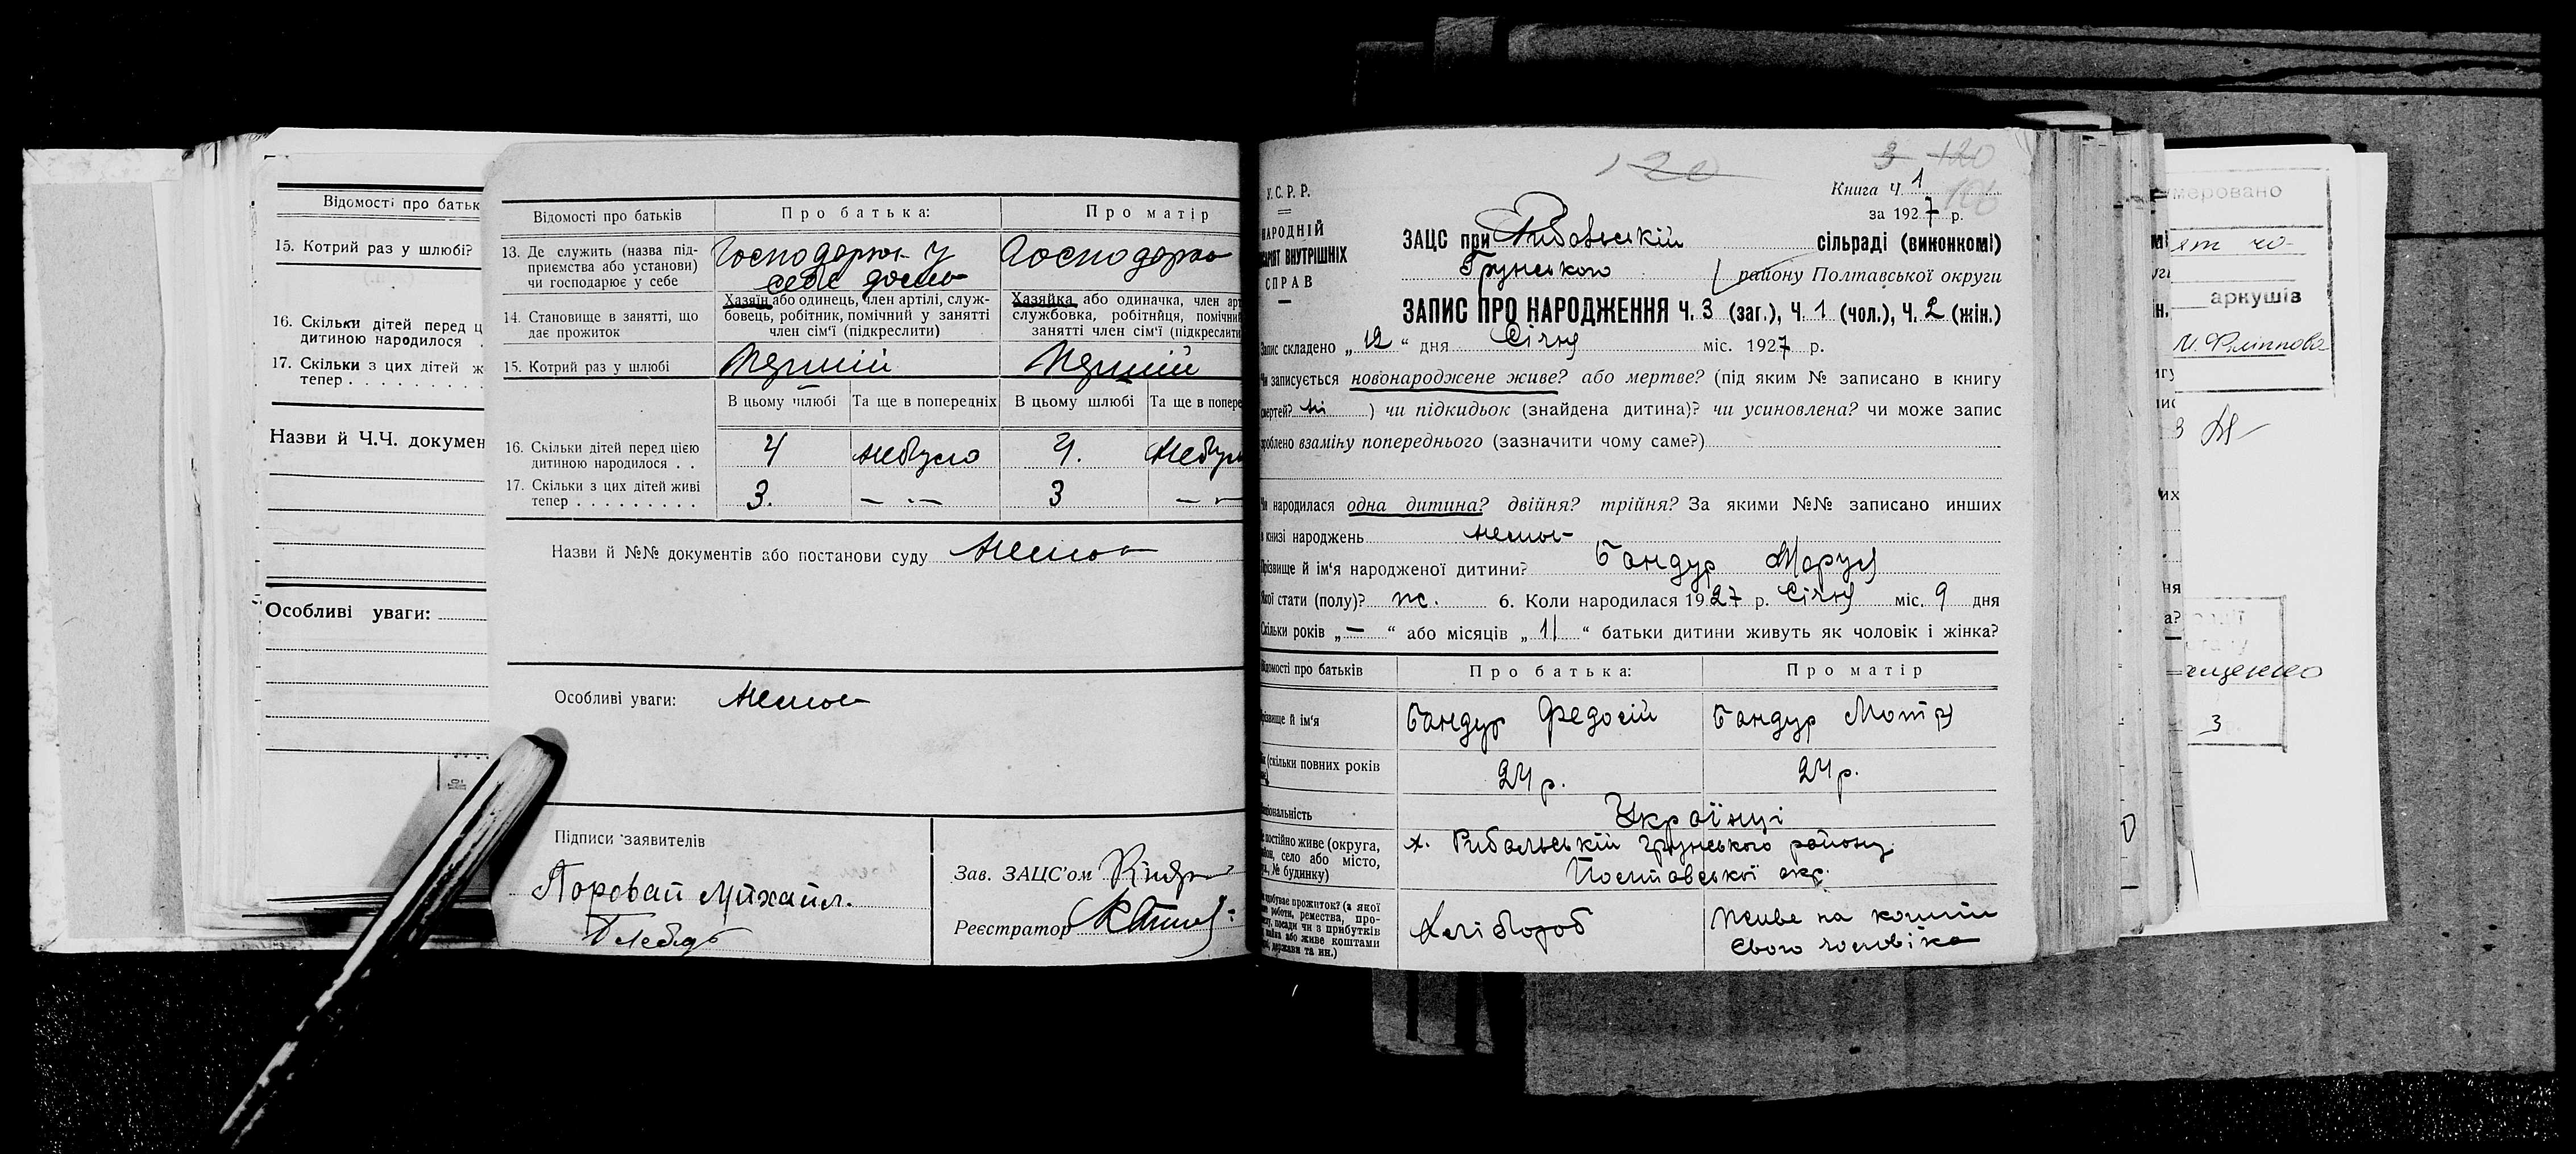 Відомості про батьк
15. Котрий раз у шлюбі?
16. Скільки дітей перед ц
дитиною народилося .
17. Скільки з цих дітей ж
тепер . . . . . . . . .
Назви й Ч.Ч. докумен
Особливі уваги:
Відомості про батьків
Про батька:
Про матір
13. Де служить (назва під-
приємства або установи)
чи господарює у себе
Господарює у
себе дома
Господарка
14. Становище в занятті, що
дає прожиток
Хазяїн або одинець, член артілі, служ-
бовець, робітник, помічний у занятті
член сім'ї (підкреслити)
Хазяйка або одиначка, член арт
службовка, робітниця, помічний
занятті член сім'ї (підкреслити
15. Котрий раз у шлюбі
Перший
Перший
В цьому шлюбі
Та ще в попередніх
В цьому шлюбі
Та ще в попере
16. Скільки дітей перед цією
дитиною народилося . .
4
небуло
4.
небул
17. Скільки з цих дітей живі
тепер . . . . . . . . .
3.
— „ —
3
Назви й №№ документів або постанови суду нема
Особливі уваги: нема
Підписи заявителів
Поровай Михайл.
Зав. ЗАЦС'ом
Реєстратор
120
3 120
У.С.Р.Р.
НАРОДНІЙ
САРІЯТ ВНУТРІШНІХ
СПРАВ
Книга Ч. 1
за 1927 р.
ЗАЦС при Рибальській сільраді (виконкомі)
Грунського району Полтавської округи
ЗАПИС ПРО НАРОДЖЕННЯ Ч. 3 (заг.), Ч. 1 (чол.), Ч. 2 (жін.)
Запис складено „ 12 “ дня Січня міс. 1927 р.
Чи записується новонароджене живе? або мертве? (під яким № записано в книгу
смертей? ні ) чи підкидьок (знайдена дитина)? чи усиновлена? чи може запис
зроблено взаміну попереднього (зазначити чому саме?)
Чи народилася одна дитина? двійня? трійня? За якими №№ записано инших
в книзі народжень нема
Прізвище й ім'я народженої дитини? Бандур Маруся
Якої стати (полу)? ж. 6. Коли народилася 1927 р. Січня міс. 9 дня
Скільки років „ — “ або місяців „ 11 “ батьки дитини живуть як чоловік і жінка?
Відомості про батьків
Про батька:
Про матір
різвище й ім'я
Бандур Федосій
Бандур Мотря
ік (скільки повних років
24 р.
24 р.
аціональність
Українці
постійно живе (округа,
район, село або місто,
№ будинку)
х. Рибальській Грунського району
Полтавської окр.
Хлібороб
Живе на кошти
свого чоловіка
меровано
аркушів
3